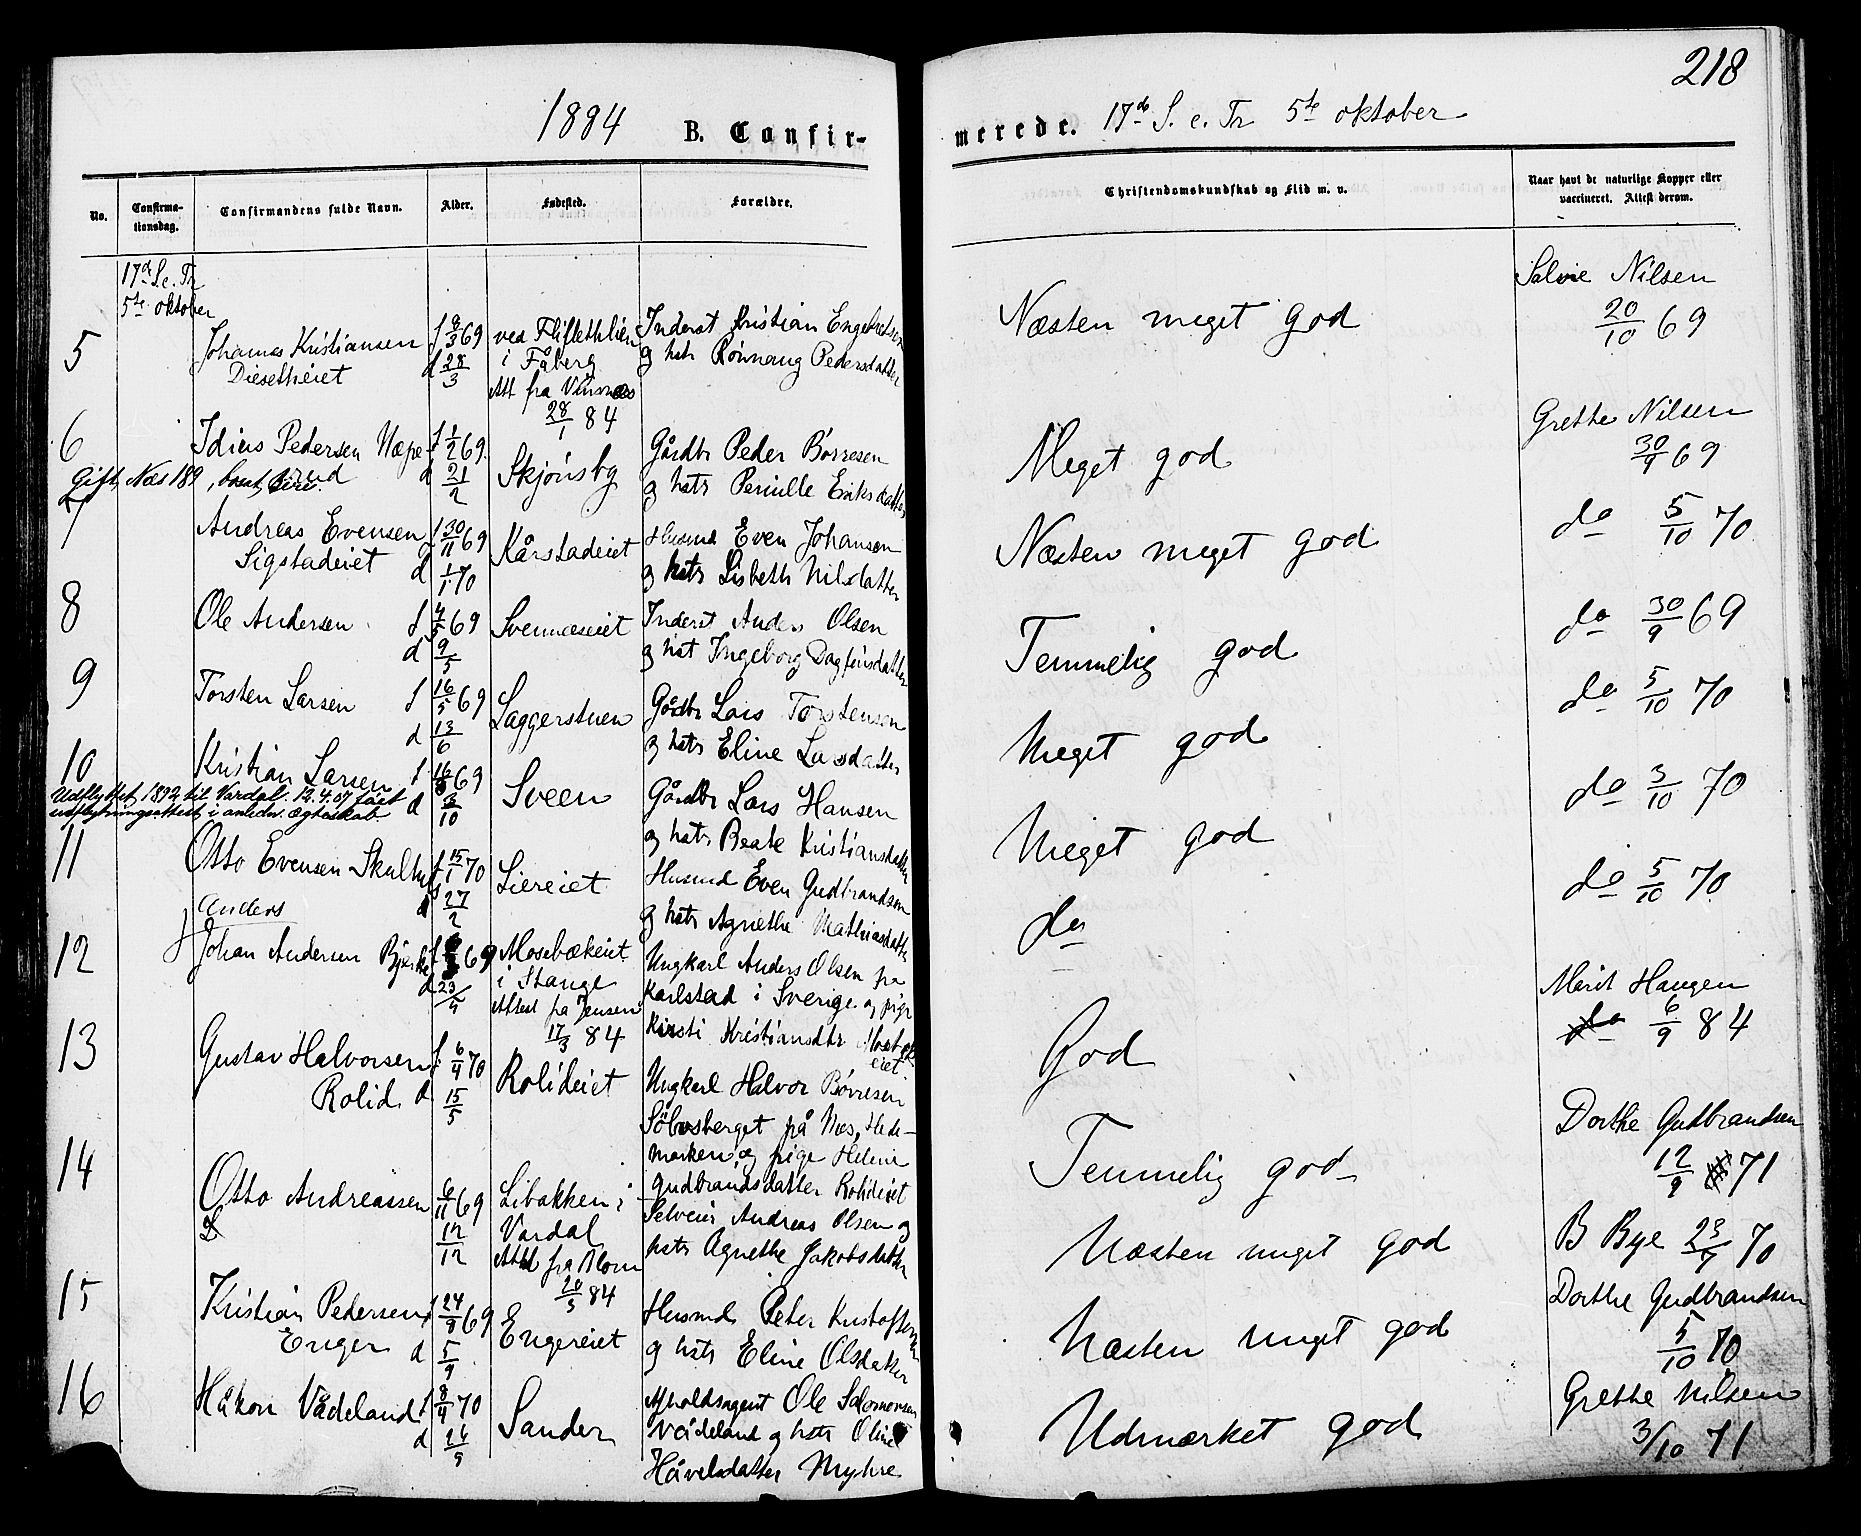 218
1884 B. Confirmerede. 17de S. e. Tr 5te oktober
No. Confirmationsdag. Confirmandens fulde Navn. Alder. Fødested. Forældre. Christendomskundskab og Flid m. v. Naar havt de naturlige Kopper eller vaccineret. Attest derom.
17de S. e. Tr
5te oktober
5 Johannes Kristiansen
f 8/3 69
d 28/3
i Fåberg
Att fra
28/1 84
Inderst Kristian Engebretsen
og hst Rönnaug Pedersdatter
Næsten meget god
Nilsen
20/10 69
6 Idius Pedersen
f 1/2 69
d 21/2
Skjönsby
Gårdbr Peder Börresen
og hstr Pernille Eriksdatter
Meget god
Grethe Nilsen
30/9 69
Gift, Næs 189
7 Andreas Evensen
Sigstadeiet
f 30/11 69
d 1/1 70
Kårstadeiet
Husmd Even Johansen
og hstr Lisbeth Nilsdatter
Næsten meget god
do 5/10 70
8 Ole Andersen
f 4/5 69
d 9/5
Svennæseiet
Inderst Anders Olsen
og hst Ingeborg Dagfinsdatter
Temmelig god
do 30/9 69
9 Torsten Larsen
f 16/5 69
d 13/6
Laggerstuen
Gårdbr Lars Torstensen
og hstr Eline Larsdatter
Meget god
do 5/10 70
10 Kristian Larsen
f 16/8 69
d 3/10
Sveen
Gårdbr Lars Hansen
og hstr Beate Kristiansdatter
Meget god
do 3/10 70
Udflyttet 1892 til Vardal. 12.4.07 fået
udflytningsattest i anledn. ægteskab
11 Otto Evensen
f 15/1 70
d 27/2
Liereiet
Husmd Even Gudbrandsen
og hstr Agnethe Mathiasdatter
do
do 5/10 70
Anders
12 Johan Andersen Bjerke
f 69
d 23/4
Mosebækeiet
i Stange
Attest fra Jensen
17/3 84
Ungkarl Anders Olsen fra
Karlstad i Sverige og pige
Kirsti Kristiansdtr
eiet
God
Marit Haugen
do 6/9 84
13 Gustav Halvorsen
Rolid
f 6/4 70
d 15/5
Rolideiet
Ungkarl Halvor Börresen
Sölvsberget på Næs, Hede-
marken, og pige Helene
Gudbrandsdatter Rolideiet
Temmelig god
Dorthe Gudbrandsen
12/9 71
14 Otto Andreassen
6/11 69
12/12
Libakken i
Vardal
Att fra Blom
20/3 84
Selveier Andreas Olsen og
hstr Agnethe Jakobsdatter
Næsten meget god
B Bye 23/7 70
15 Kristian Pedersen
Enger
f 24/9 69
d 5/9
Engereiet
Husmd Peter Kristoffersen
og hstr Eline Olsdatter
Næsten meget god
Dorthe Gudbrandsen
5/10 70
16 Håkon Vådeland
f 8/4 70
d 26/5
Sander
Afholdsagent Ole Salomonsen
Vådeland og hstr Oline
Håvelsdatter Myhre
Udmærket god
Grethe Nilsen
3/10 71